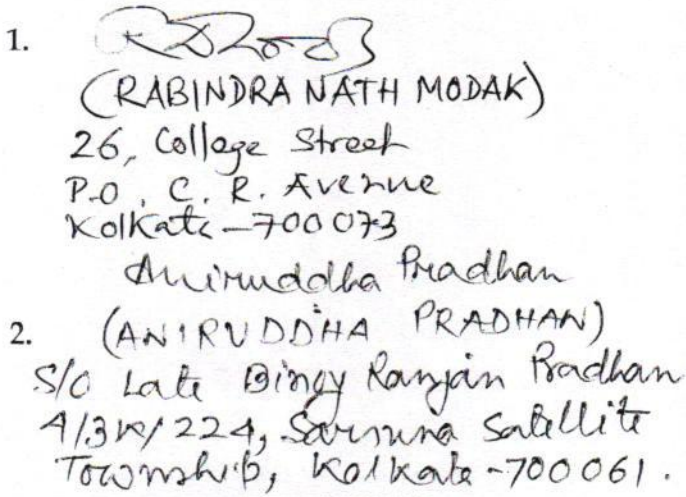 1.
(RABINDRA NATH MODAK)
26, College Street
P.O. C. R. Avenue
Kolkata - 700073
Aniruddha Pradhan
2. (ANIRUDDHA PRADHAN)
S/O Late Binoy Ranjan Pradhan
A/3K/224, Sarsuna Satellite
Township, Kolkata - 700061.